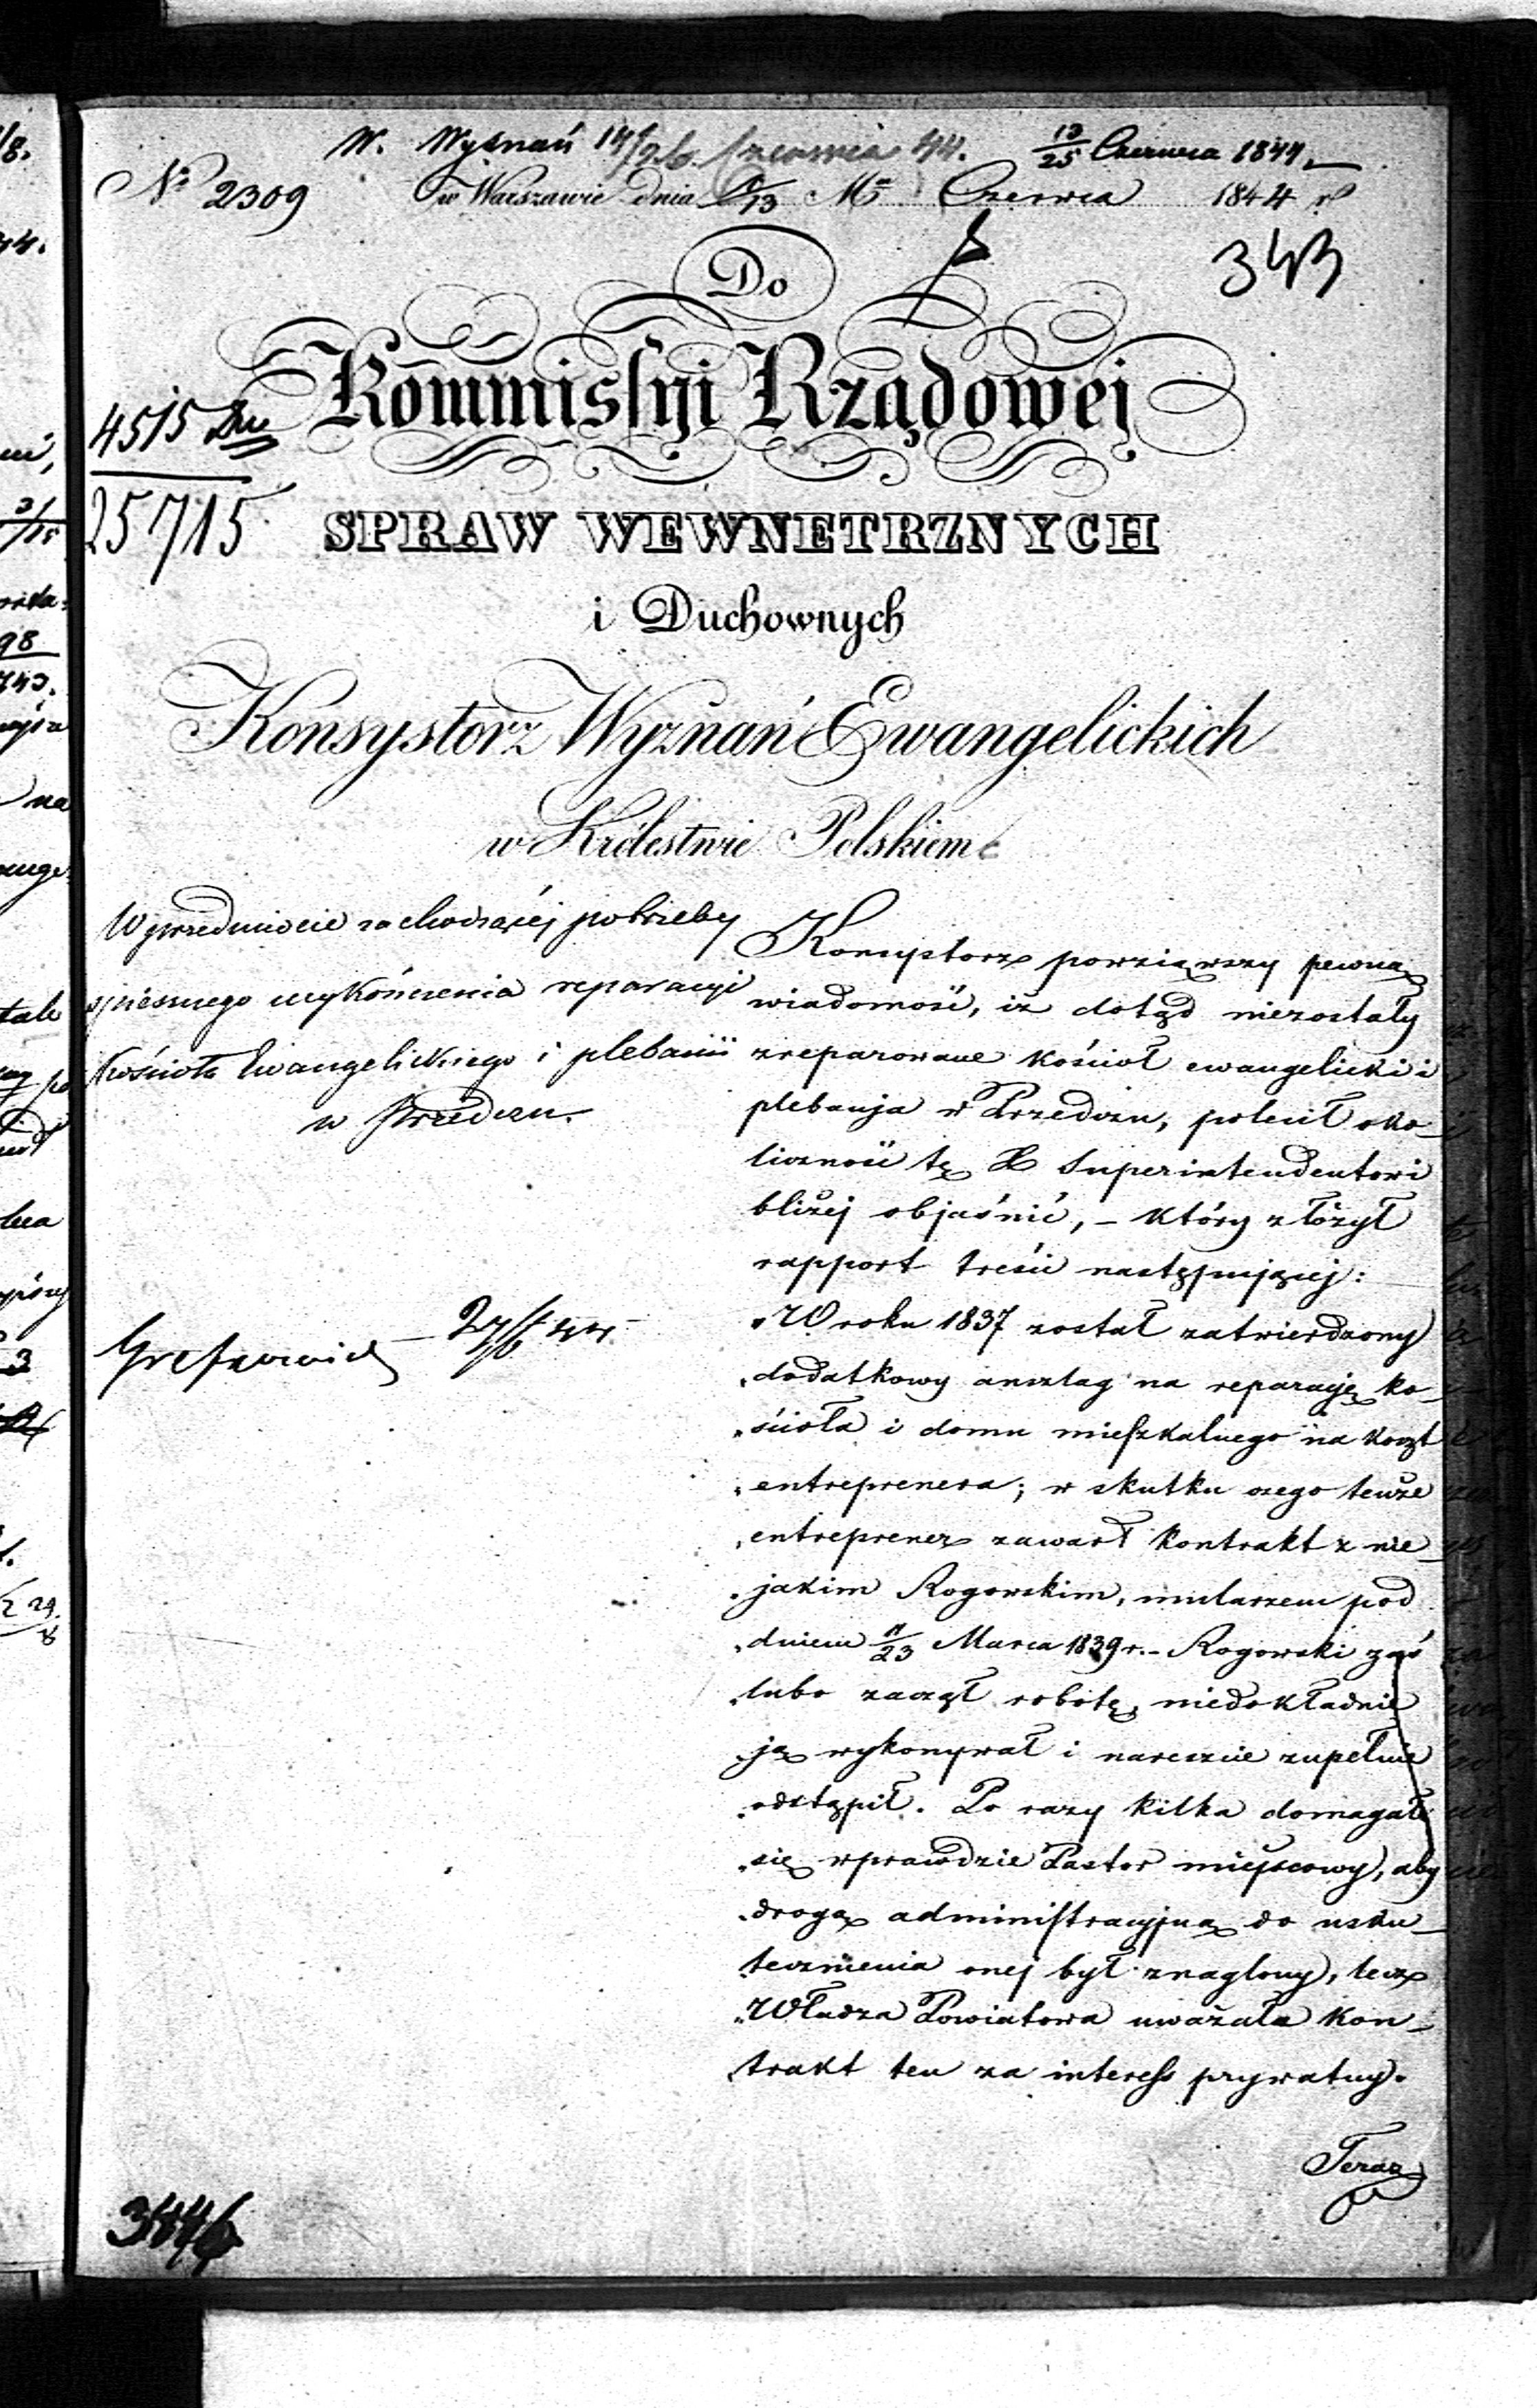 W. Wyznań 14/26 Czerwca 44. 13/25 Czerwca 1844
No 2309 w Warszawie dnia 1/13 Mca Czerwca 1844 r
343
Do
Kommissyi Rządowej
4515
25715
SPRAW WEWNETRZNYCH
i Duchownych
Konsystorz Wyznań Ewangelickich
w Królestwie Polskiem
W przedmiocie zachodzącéj potrzeby
spiesznego wykończenia reparacyi
kościoła Ewangelickiego i plebanii
w Przedczu.
27/6 44
Konsystorz powziąwszy pewną
wiadomość, iż dotąd niezostały
zreparowane kościoł ewangelicki i
plebanja w Przedczu, polecił oko-
liczność tę X Superintendentowi
bliżej objaśnić, – który złożył
rapport treści następującej:
„W roku 1837 został zatwierdzony
„dodatkowy anszlag na reparacyę ko-
„ścioła i domu mieszkalnego na koszt
„entreprenera; w skutku czego tenże
„entreprener zawarł kontrakt z nie
„jakim Rogowskim, mularzem pod
„dniem 11/23 Marca 1839 r. – Rogowski zaś
„lubo zaczął robotę, niedokładnie
„ją wykonywał i nareszcie zupełnie
„odstąpił. Po razy kilka domagał
„się wprawdzie Pastor miejscowy, aby
„drogą administracyjną do usku-
„tecznienia onej był znaglony, lecz
„Władza Powiatowa uważała kon-
„trakt ten za interess prywatny.
Teraz
3446